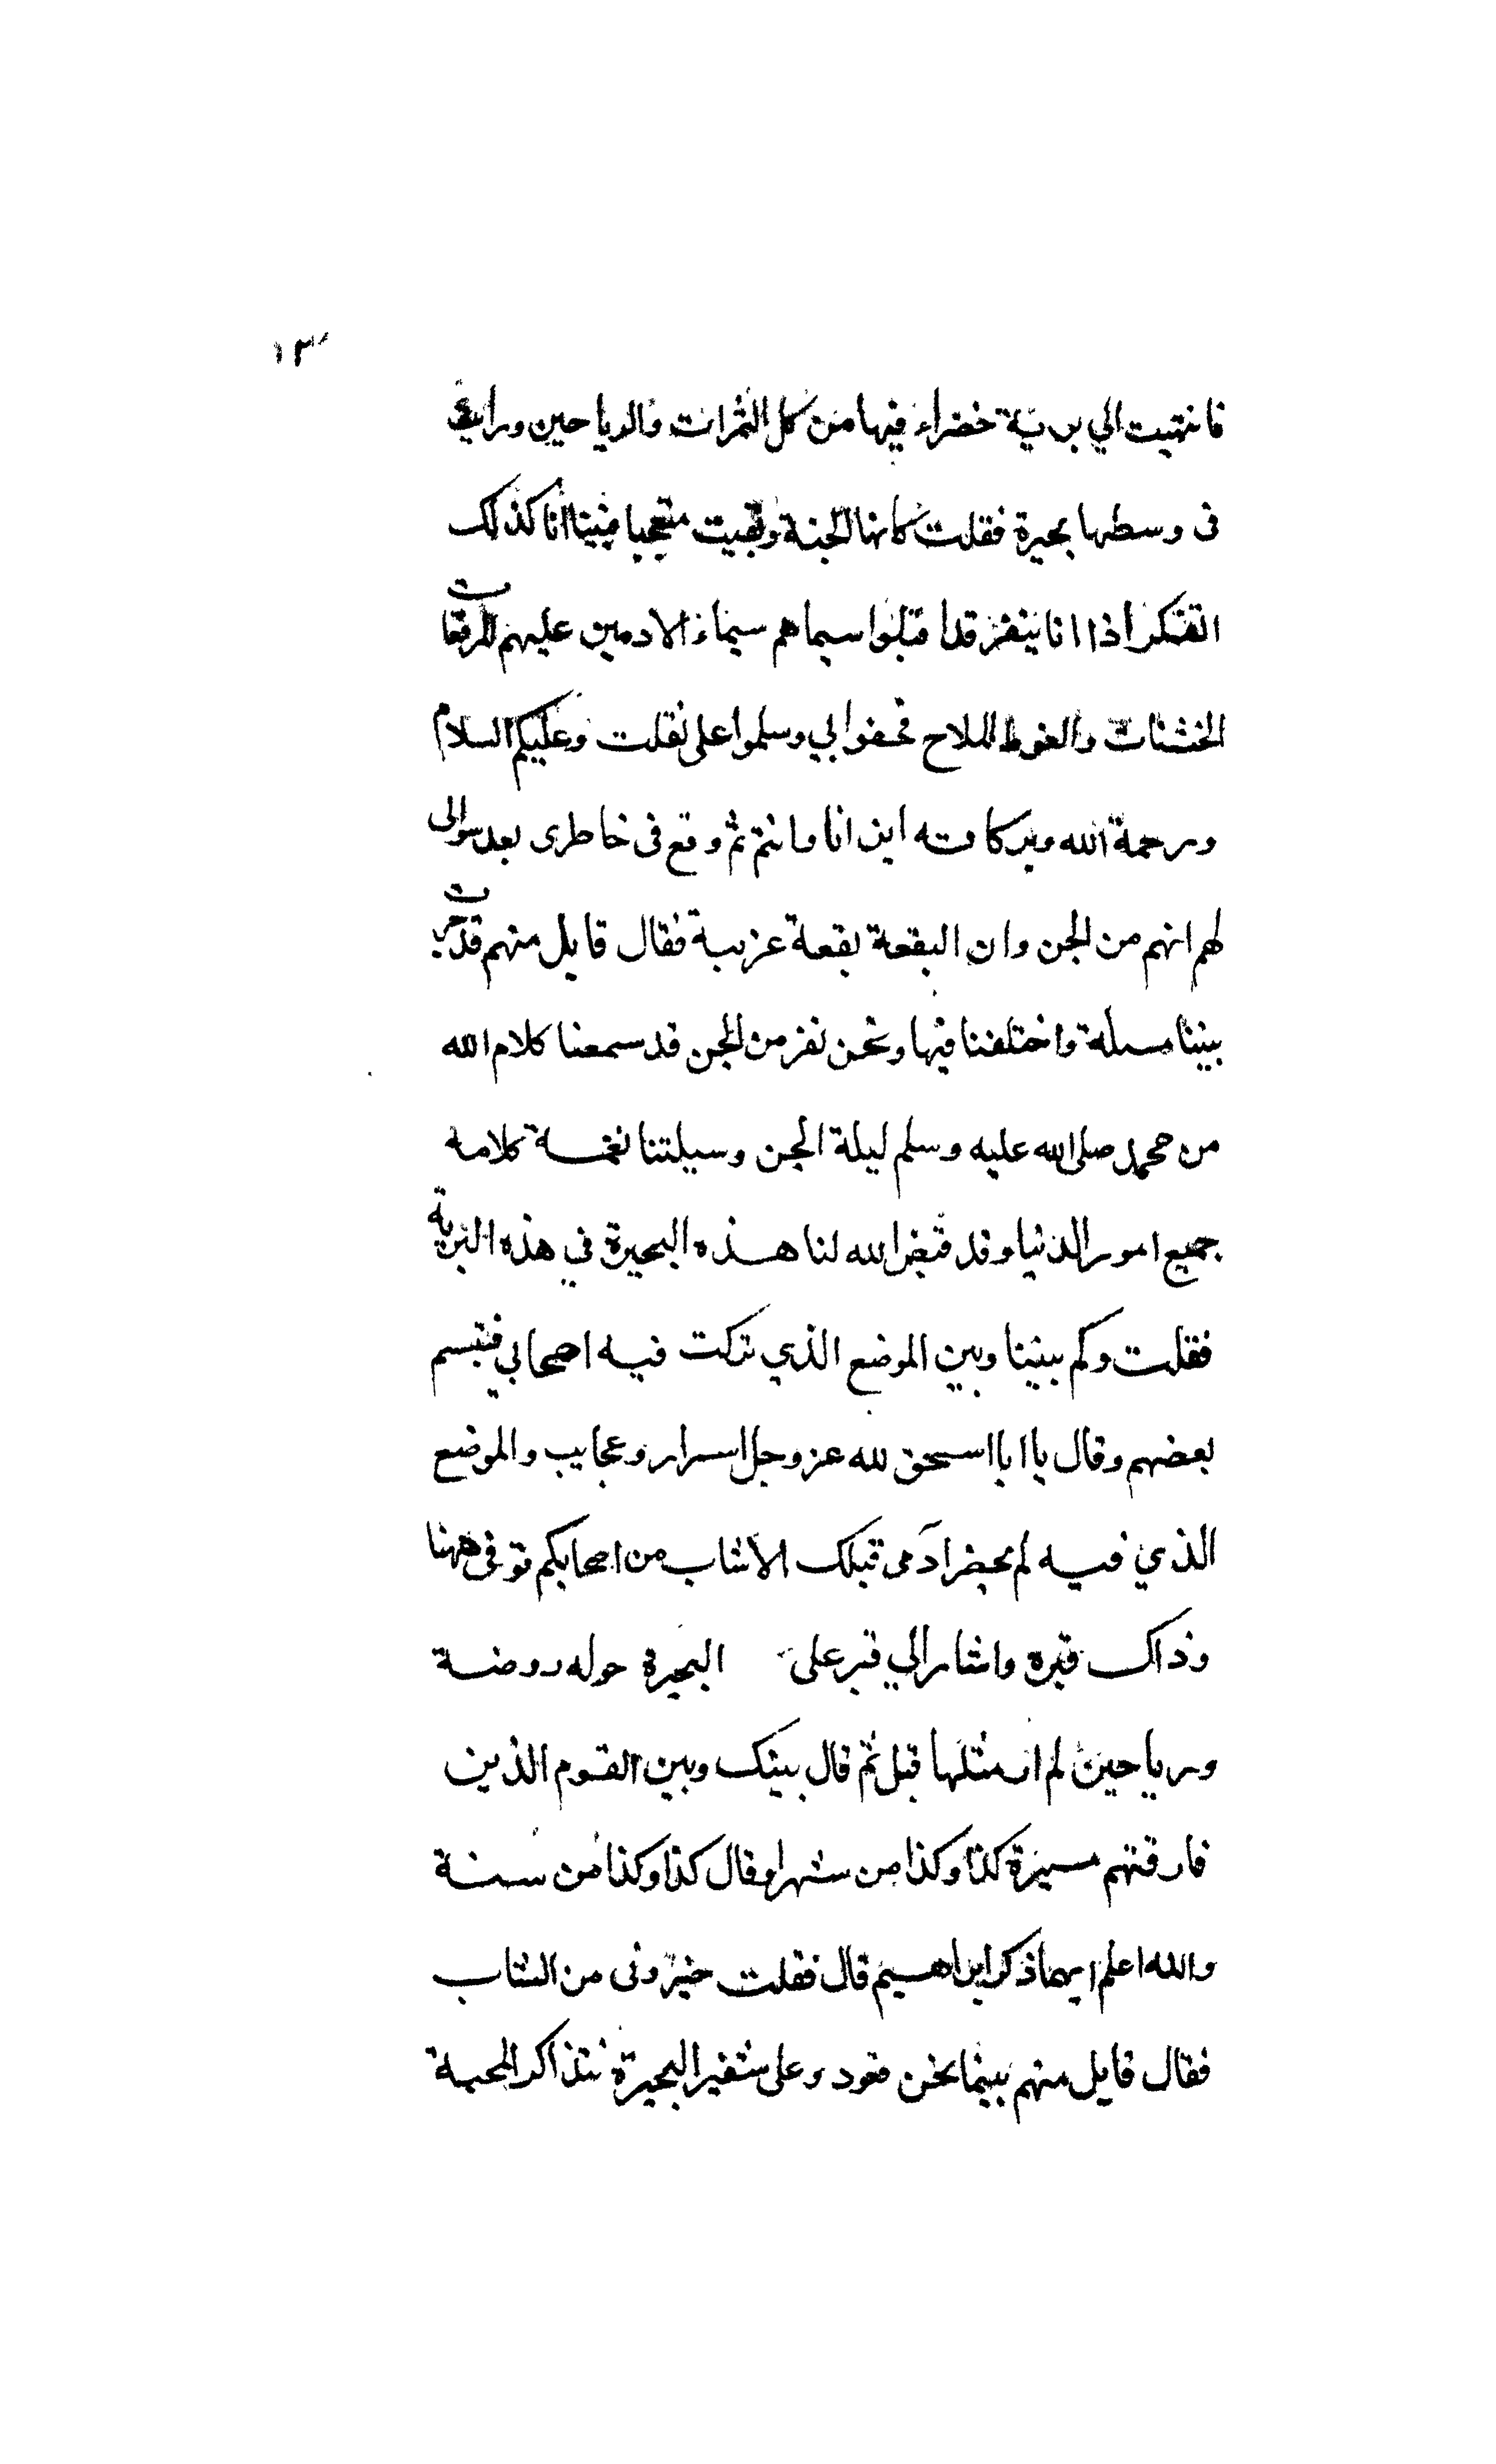 ١٣
فانتهيت الي برية خضراء فيها من كل الثمرات والرياحين ورايت
فى وسطها بحيرة فقلت كانها الجنة وبقيت متعجبا فبينا انا كذلك
اتفكر اذا انا بنفر قد اقبلوا سيماهم سيماء الادميين عليهم المرقعات
الخشنات والفوط الملاح فحفوا بي وسلموا على فقلت وعليكم السلام
ورحمة الله وبركاته اين انا وانتم ثم وقع فى خاطرى بعد سوالى
لهم انهم من الجن وان البقعة بقعة غريبة فقال قايل منهم قد جرت
بيننا مسلة واختلفنا فيها ونحن نفر من الجن قد سمعنا كلام الله
من محمد صلى الله عليه وسلم ليلة الجن وسيلتنا نغمة كلامه
جميع امور الدنيا وقد قيض الله لنا هذه البحيرة في هذه البرية
فقلت وكم بيننا وبين الموضع الذي تركت فيه اصحابي فتبسم
بعضهم وقال يا ابا اسحق لله عز وجل اسرار وعجايب والموضع
الذي فيه لم يحضر ادمى قبلك الا شاب من اصحابكم توفى ههنا
وذاك قبره واشار الي قبر على البحيرة حوله روضة
ورياحين لم ار مثلها قبل ثم قال بينك وبين القوم الذين
فارقتهم مسيرة كذا وكذا من شهر او قال كذا وكذا من سنة
والله اعلم ايهما ذكر ابراهيم قال فقلت خبرونى من الشاب
فقال قايل منهم بينما نحن قعود وعلى شفير البحيرة نتذاكر المحبة